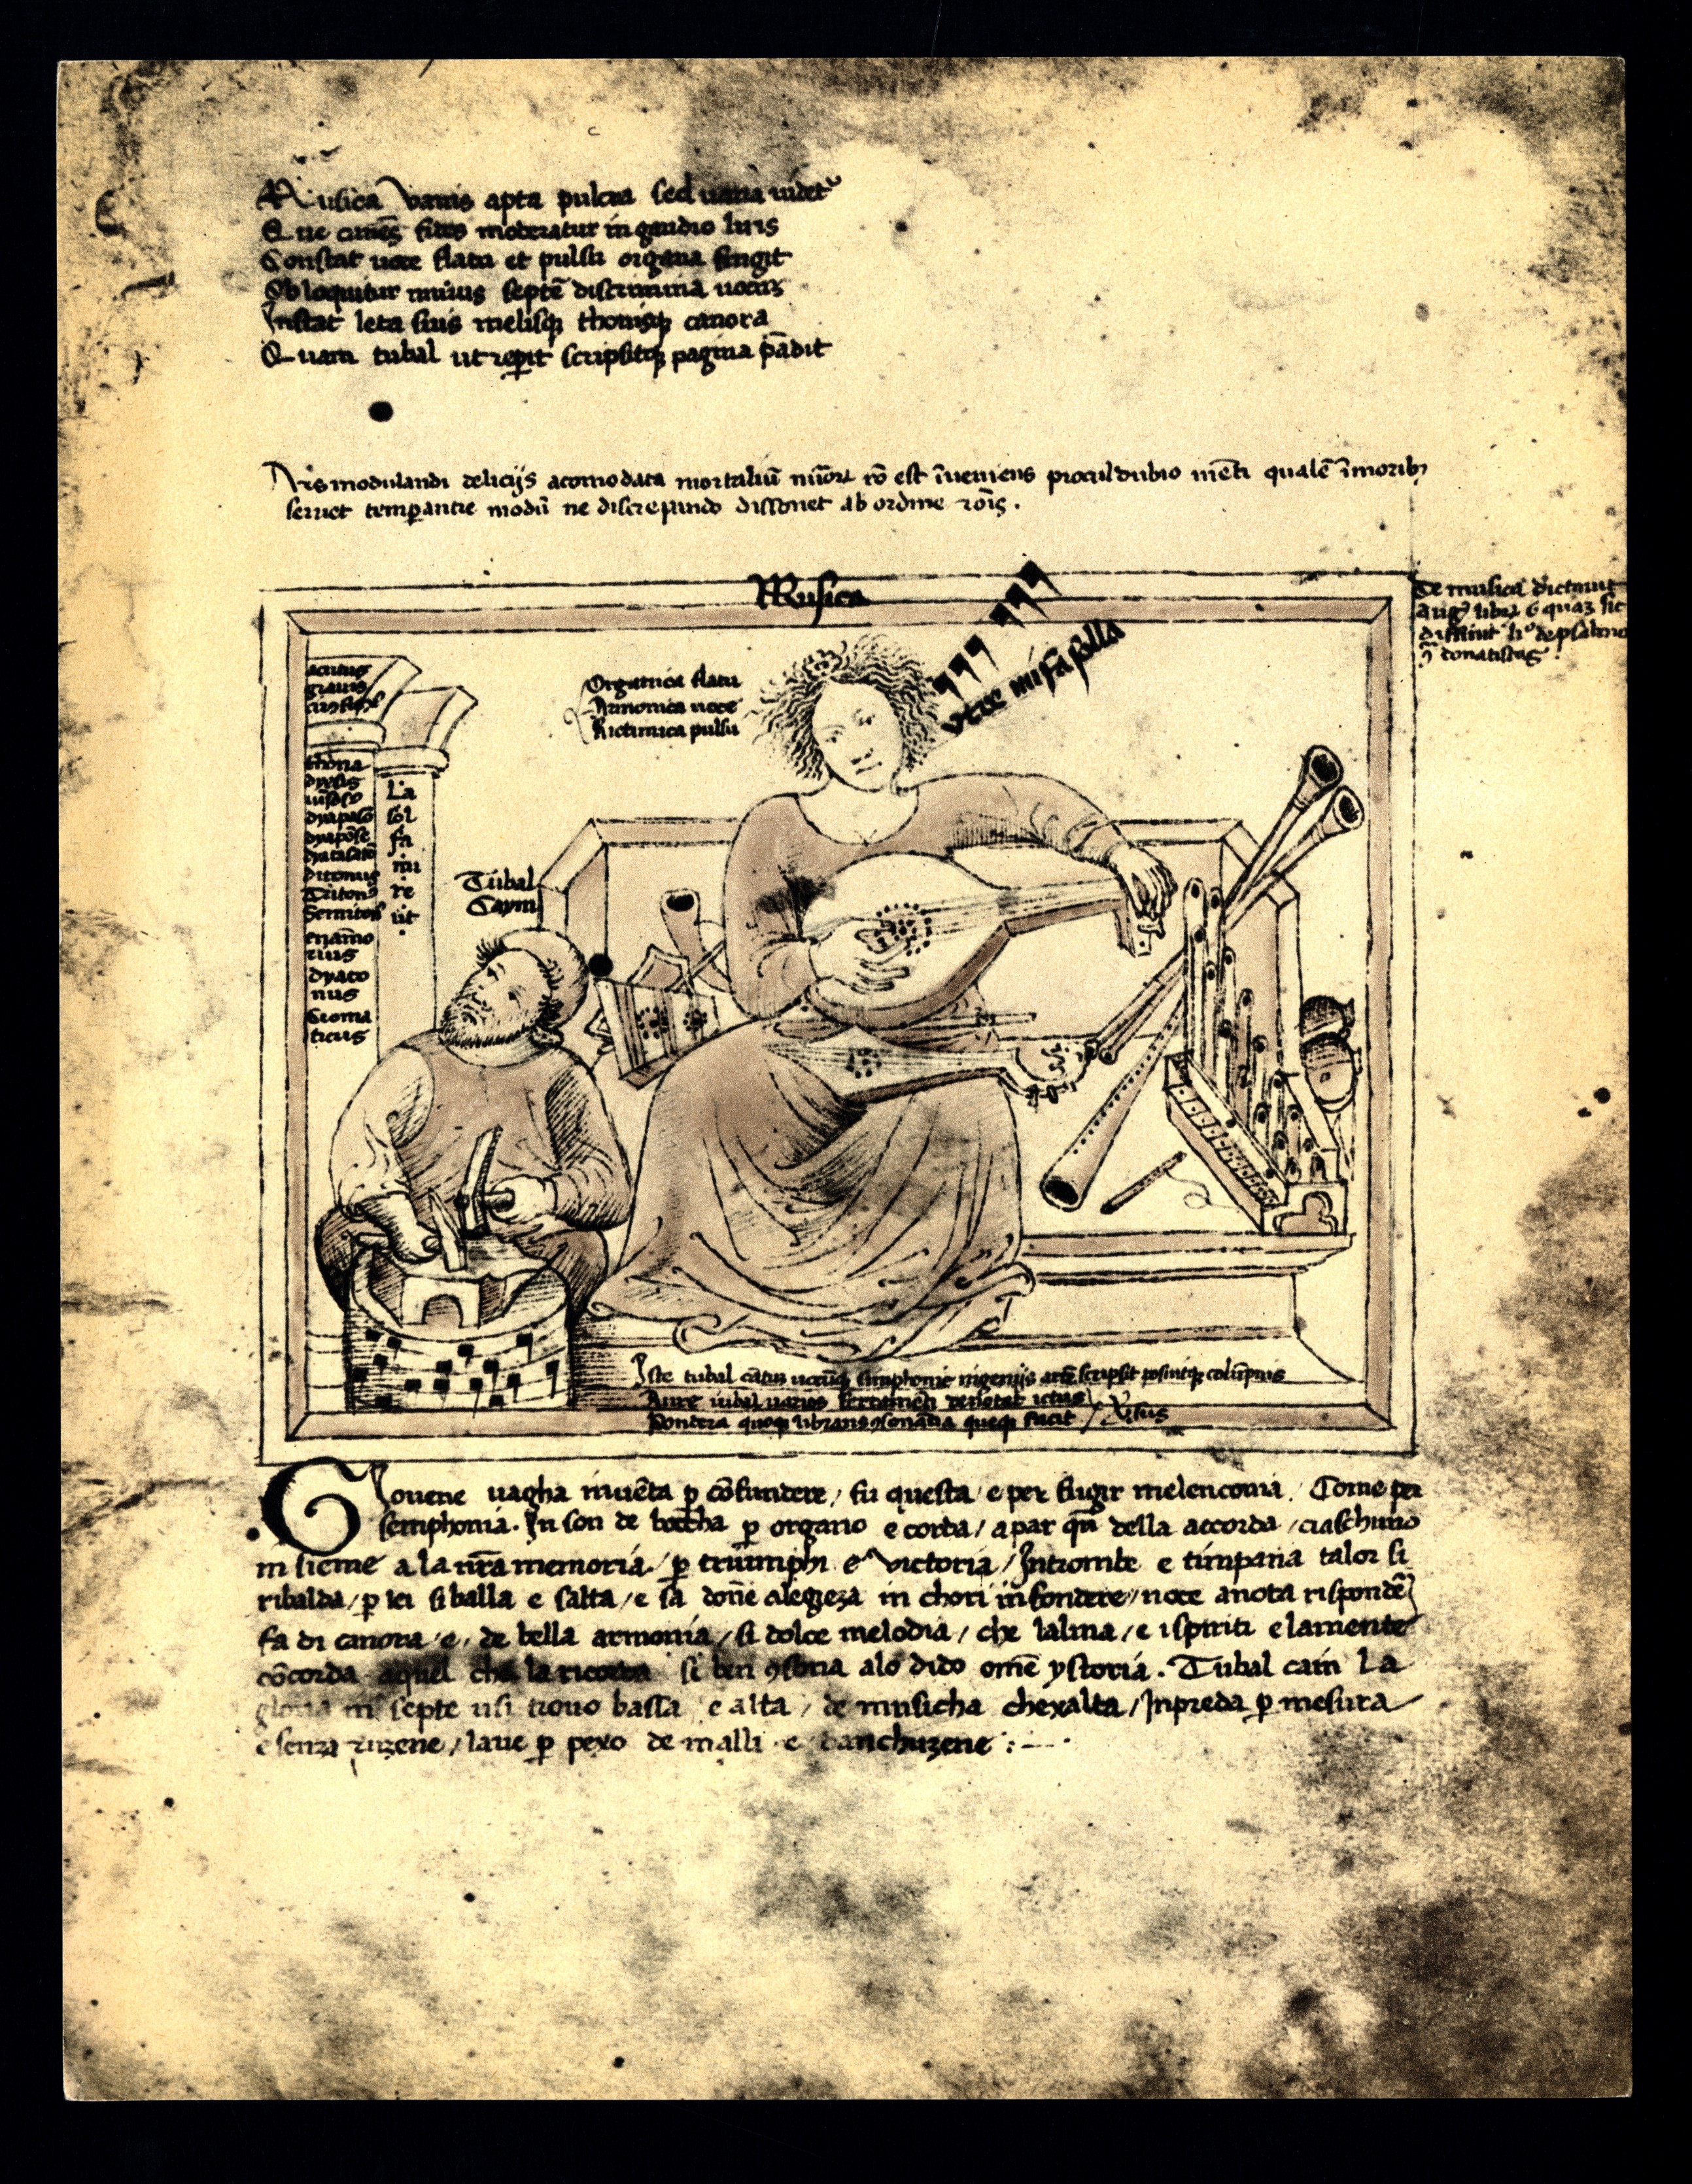 Musica vanis apta pulcra sed vana videt᷑
Que omēs moderatur in gaudio luris
Constat voce flatu et pulsu organa fingit
Obloquitur septē discrimina vocuꝫ
Instat leta suis melisqꝫ thonisqꝫ canora
Quam tubal ut reꝑit scripsitqꝫ pagina pādit
Ars modulandi delicijs acomodata mortaliū rō est īveniens proculdubio mēti qualē ī moribꝫ
servet temꝑantie modū ne discrepando dissonet ab ordine rōis.
Musica
De musica dictavit
augꝰ libri 6 quaꝫ sic
diffinit li° de psalmo
ꝯ donatistas
acutus
gravis
Organica flatu
Armonica voce
Rictimica pulsu
ut re mi fa sol la
dyapasō
ditonus
Tritonꝰ
Semiton
enarmo
nius
dyato
nus
Croma
ticus
La
sol
fa
mi
re
ut
Tubal
Cayin
Iste tubal simphonie ingenijs artē scripsit posuitqꝫ colūpnis
Aure iubal varios ferramēti denotat ictus
Pondera queqꝫ librans ꝯsonātia queqꝫ facit
Giovene vagha invēta ꝑ cōfundere / fu questa / e per fugir melenconia. Come per
semphonia. In son de boccha ꝑ organo e corda / apar qn̄ della accorda / ciaschuno
insieme a la nr̄a memoria. ꝑ triumphi e victoria / Intrombe e timpana talor si
ribalda / ꝑ lei si balla e salta / e fa done alegreza in chori infondere / voce a nota rispondē
fa di canora / e / de bella armonia / si dolce melodia / che lalma / e i spiriti e lamente
cōcorda aquel che la ricorda si ben ꝯsona alo dido omē ystoria. Tubal cain La
gloria in septe usi trovo bassa e alta / de musicha chexalta / Inpreda ꝑ mesura
e senza ruzene / lave ꝑ pexo de malli e danchuzene :—·